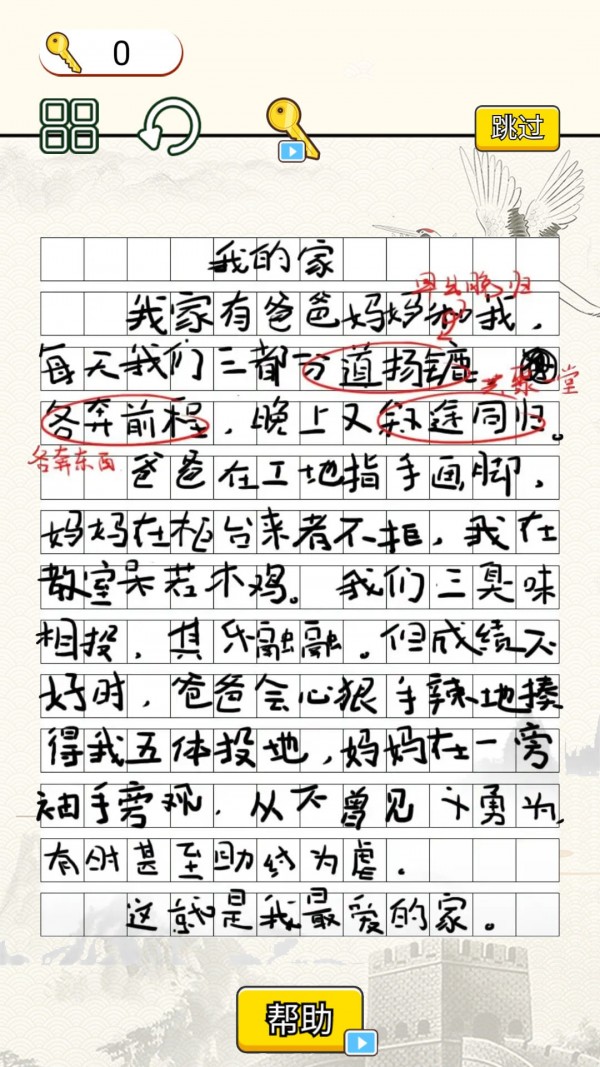 0
跳过
我的家
早出晚归
我家有爸爸妈妈和我,
每天我们三都分道扬镳
共聚一堂
各奔前程,晚上又殊途同归。
各奔东西
爸爸在工地指手画脚,
妈妈在柜台来者不拒,我在
教室呆若木鸡。我们三臭味
相投,其乐融融。但成绩不
好时,爸爸会心狠手辣地揍
得我五体投地,妈妈在一旁
袖手旁观,从不曾见义勇为,
有时甚至助纣为虐。
这就是我最爱的家。
帮助